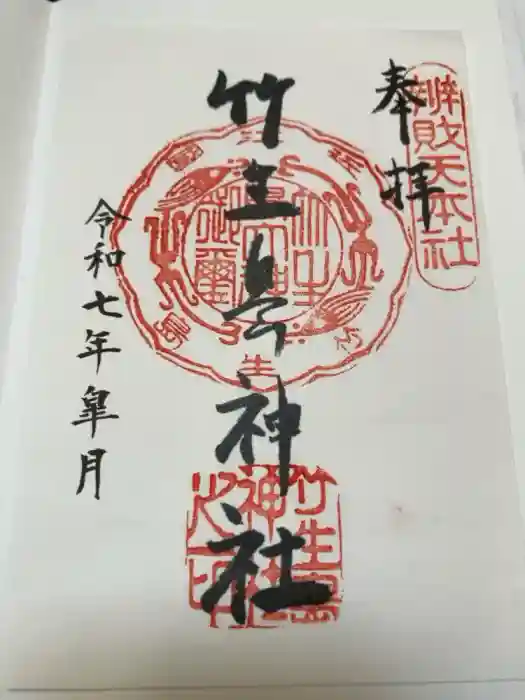 奉拝
辨財天本社
竹生島神社
令和七年皐月
竹生島神社之印